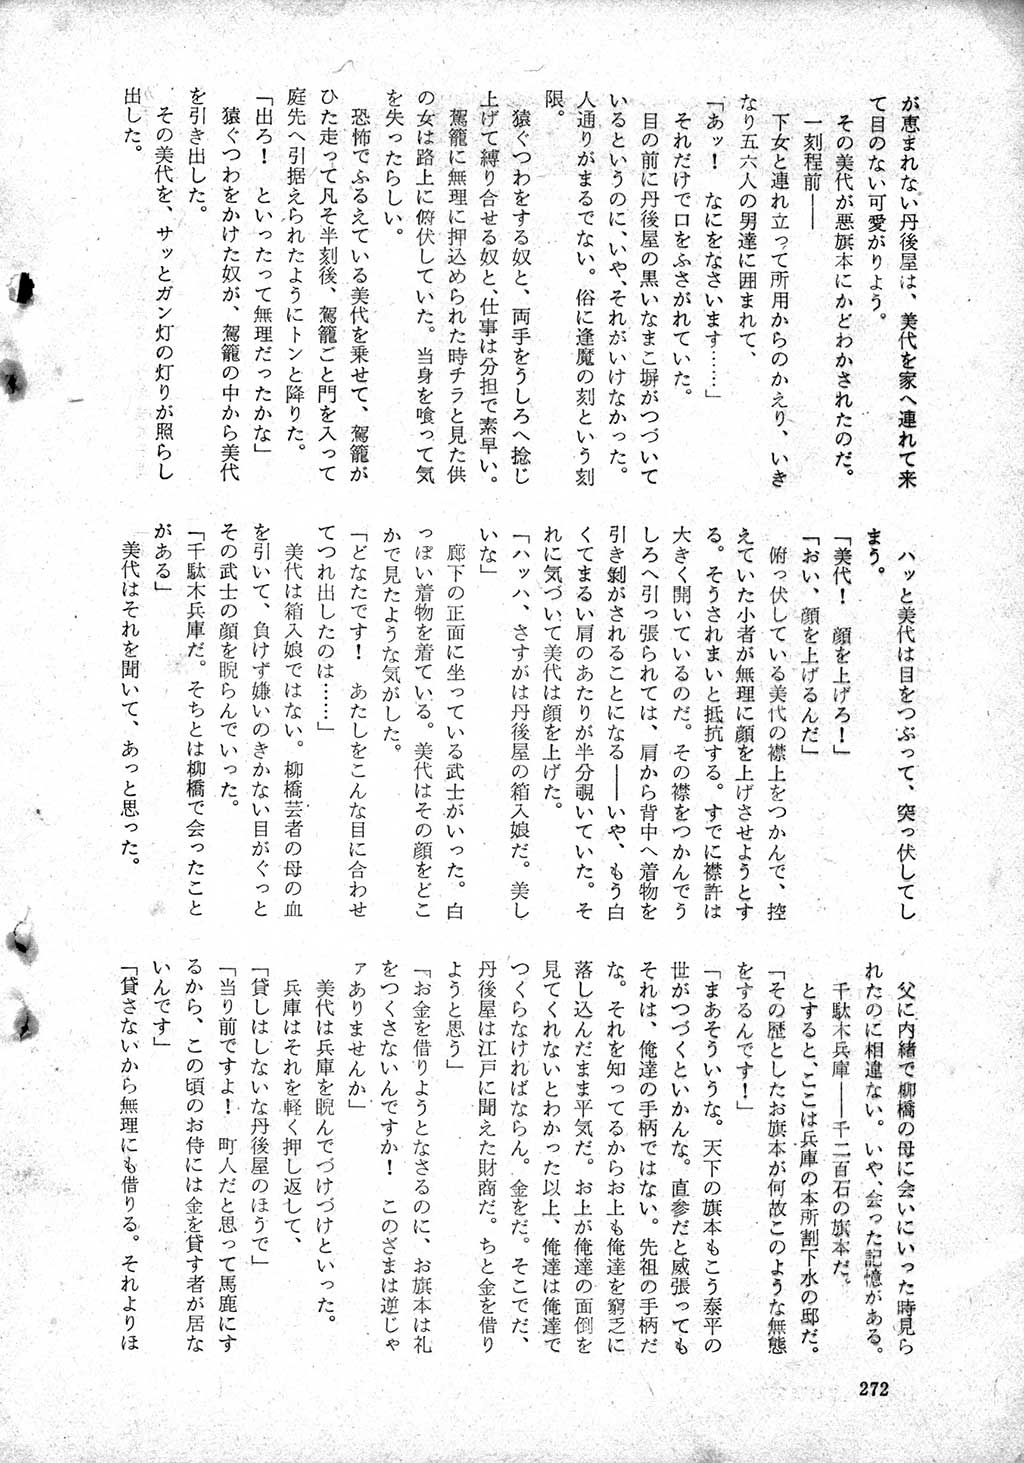 が恵まれない丹後屋は、美代を家へ連れて来
て目のない可愛がりよう。
その美代が悪旗本にかどわかされたのだ。
一刻程前――
下女と連れ立って所用からのかえり、いき
なり五六人の男達に囲まれて、
「あッ！　なにをなさいます……」
それだけで口をふさがれていた。
目の前に丹後屋の黒いなまこ塀がつづいて
いるというのに、いや、それがいけなかった。
人通りがまるでない。俗に逢魔の刻という刻
限。
猿ぐつわをする奴と、両手をうしろへ捻じ
上げて縛り合せる奴と、仕事は分担で素早い。
駕籠に無理に押込められた時チラと見た供
の女は路上に俯伏していた。当身を喰って気
を失ったらしい。
恐怖でふるえている美代を乗せて、駕籠が
ひた走って凡そ半刻後、駕籠ごと門を入って
庭先へ引据えられたようにトンと降りた。
「出ろ！　といったって無理だったかな」
猿ぐつわをかけた奴が、駕籠の中から美代
を引き出した。
その美代を、サッとガン灯の灯りが照らし
出した。
ハッと美代は目をつぶって、突っ伏してし
まう。
「美代！　顔を上げろ！」
「おい、顔を上げるんだ」
俯っ伏している美代の襟上をつかんで、控
えていた小者が無理に顔を上げさせようとす
る。そうされまいと抵抗する。すでに襟許は
大きく開いているのだ。その襟をつかんでう
しろへ引っ張られては、肩から背中へ着物を
引き剝がされることになる――いや、もう白
くてまるい肩のあたりが半分覗いていた。そ
れに気づいて美代は顔を上げた。
「ハッハ、さすがは丹後屋の箱入娘だ。美し
いな」
廊下の正面に坐っている武士がいった。白
っぽい着物を着ている。美代はその顔をどこ
かで見たような気がした。
「どなたです！　あたしをこんな目に合わせ
てつれ出したのは……」
美代は箱入娘ではない。柳橋芸者の母の血
を引いて、負けず嫌いのきかない目がぐっと
その武士の顔を睨らんでいった。
「千駄木兵庫だ。そちとは柳橋で会ったこと
がある」
美代はそれを聞いて、あっと思った。
父に内緒で柳橋の母に会いにいった時見ら
れたのに相違ない。いや、会った記憶がある。
千駄木兵庫――千二百石の旗本だ。
とすると、ここは兵庫の本所割下水の邸だ。
「その歴としたお旗本が何故このような無態
をするんです！」
「まあそういうな。天下の旗本もこう泰平の
世がつづくといかんな。直参だと威張っても
それは、俺達の手柄ではない。先祖の手柄だ
な。それを知ってるからお上も俺達を窮乏に
落し込んだまま平気だ。お上が俺達の面倒を
見てくれないとわかった以上、俺達は俺達で
つくらなければならん。金をだ。そこでだ、
丹後屋は江戸に聞えた財商だ。ちと金を借り
ようと思う」
「お金を借りようとなさるのに、お旗本は礼
をつくさないんですか！　このざまは逆じゃ
ァありませんか」
美代は兵庫を睨んでづけづけといった。
兵庫はそれを軽く押し返して、
「貸しはしないな丹後屋のほうで」
「当り前ですよ！　町人だと思って馬鹿にす
るから、この頃のお侍には金を貸す者が居な
いんです」
「貸さないから無理にも借りる。それよりほ
272